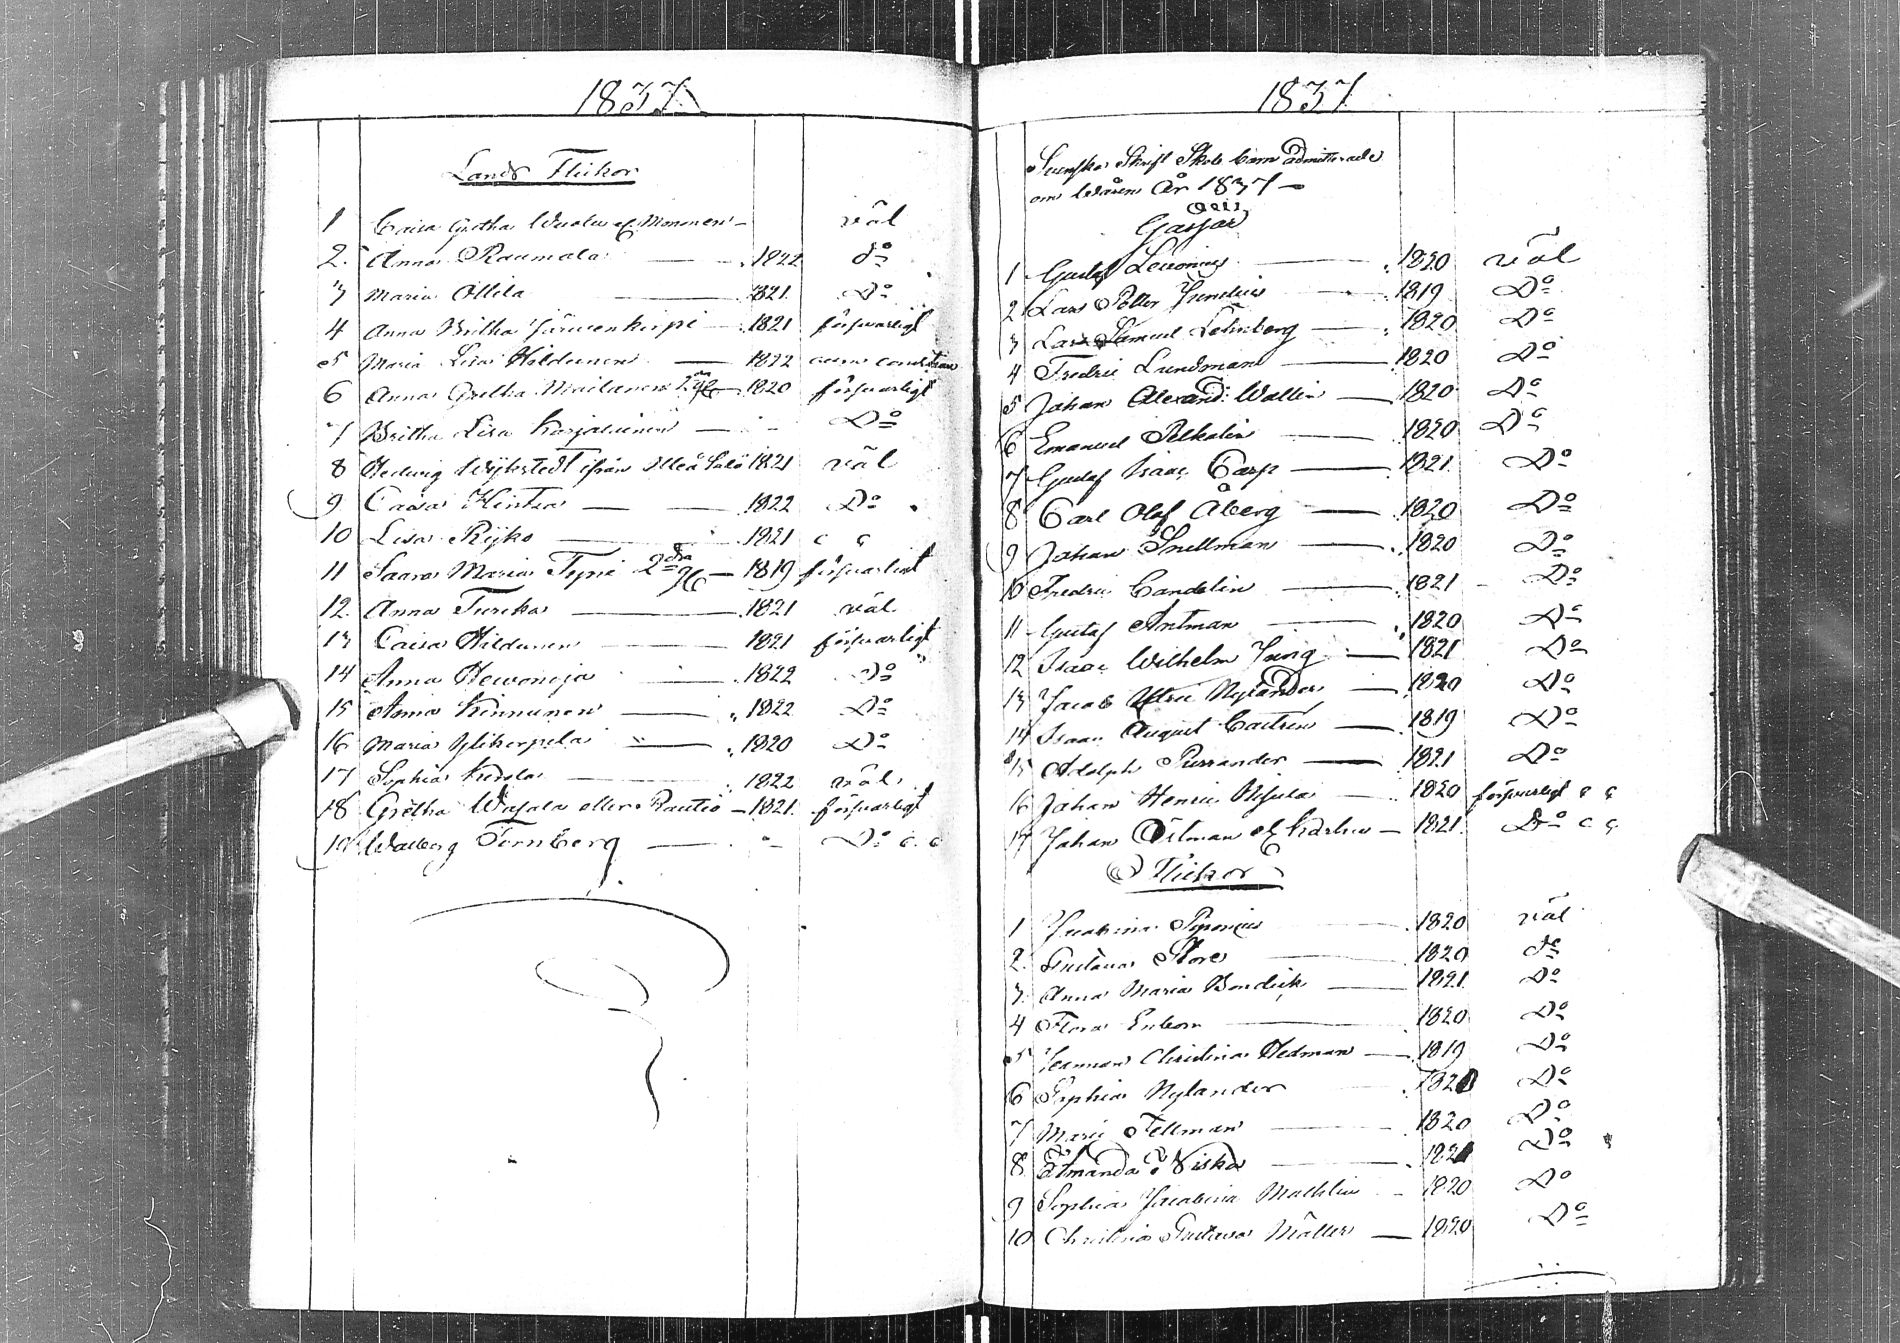 1837
Lands Flickor
1 Caisa Gretha Wuolio eg. Mononen — väl
2. Anna Raumala — 1822 do
3 Maria Ollila — 1821. Do
4 Anna Britha Järwenkirpi — 1821 försvarligt
5 Maria Lisa Hildunen — 1822
6 Anna Gretha — 1820 försvarligt
7 Britha Lisa Karjalainen — Do
8 Hedwig Wijkstedt ifrån Uleå Salo 1821 väl
9 Caisa Hintsa — 1822 Do
10 Lisa Rijko — 1821 c c
11 Saara Maria 2dra — 1819 försvarligt
12. Anna Turcka — 1821 väl
13 Caisa Hildunen — 1821 försvarligt
14 Anna Hewonoja — 1822 Do
15 Anna Kinnunen — 1822 Do
16 Maria Ylikorpela — 1820 Do
17 Sophia — 1822 väl
18 Gretha Wasala eller Rautio — 1821. försvarligt
19 Walborg Tornberg — Do c. c
1837
Svenska Skrift Skole barn admitterade
om Våren År 1837 —
Gossar
1 Gustaf — 1820 väl
2 Lars Petter Junelius — 1819 Do
3 Lars Samuel Lehnberg — 1820 Do
4 Fredric Lundman — 1820 Do
5 Johan Alexand: Wallin — 1820 Do
6 Emanuel Pelkolin — 1820 Do
7 Gustaf Isaac Carp — 1821. Do
8 Carl Olof Åberg — 1820 Do
9 Johan Snellman — 1820 Do
10 Fredric Candelin — 1821 Do
11 Gustaf Antman — 1820 Do
12 Isaac Wilhelm Jung — 1821 Do
13 Jacob Nylander — 1820 Do
14 Isaac August Castrén — 1819 Do
15 Adolph Purrander — 1821 Do
16 Johan Henric — 1820 försvarligt c c
17 Johan Östman — 1821. Do c c
Flickor
1 Jacobina — 1820 väl
2. Gustava Store — 1820 do
3. Anna Maria Bondick — 1821 Do
4 Flora Enbom — 1820 Do
5 Joanna Christina Hedman — 1819 Do
6 Sophia Nylander — 1820 Do
7 Marie Fellman — 1820 Do
8 Amanda Niska — 1821 Do
9 Sophia Jacobina Mathlin — 1820 Do
10 Christina Gustava Möller — 1820 Do